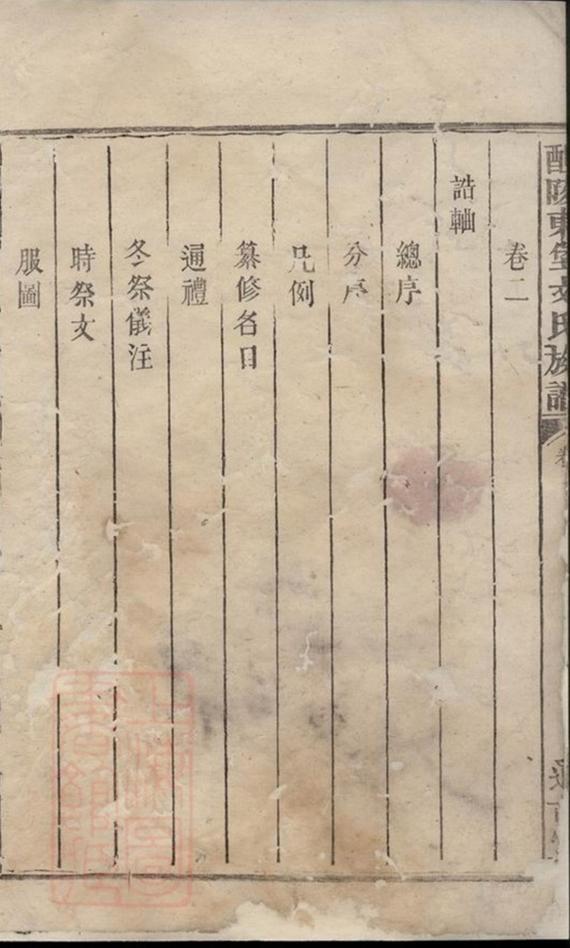 醴陵東堡文氏族譜
卷二
誥軸
總序
分序
凡例
纂修名目
通禮
冬祭儀注
時祭文
服圖
上海圖書館藏